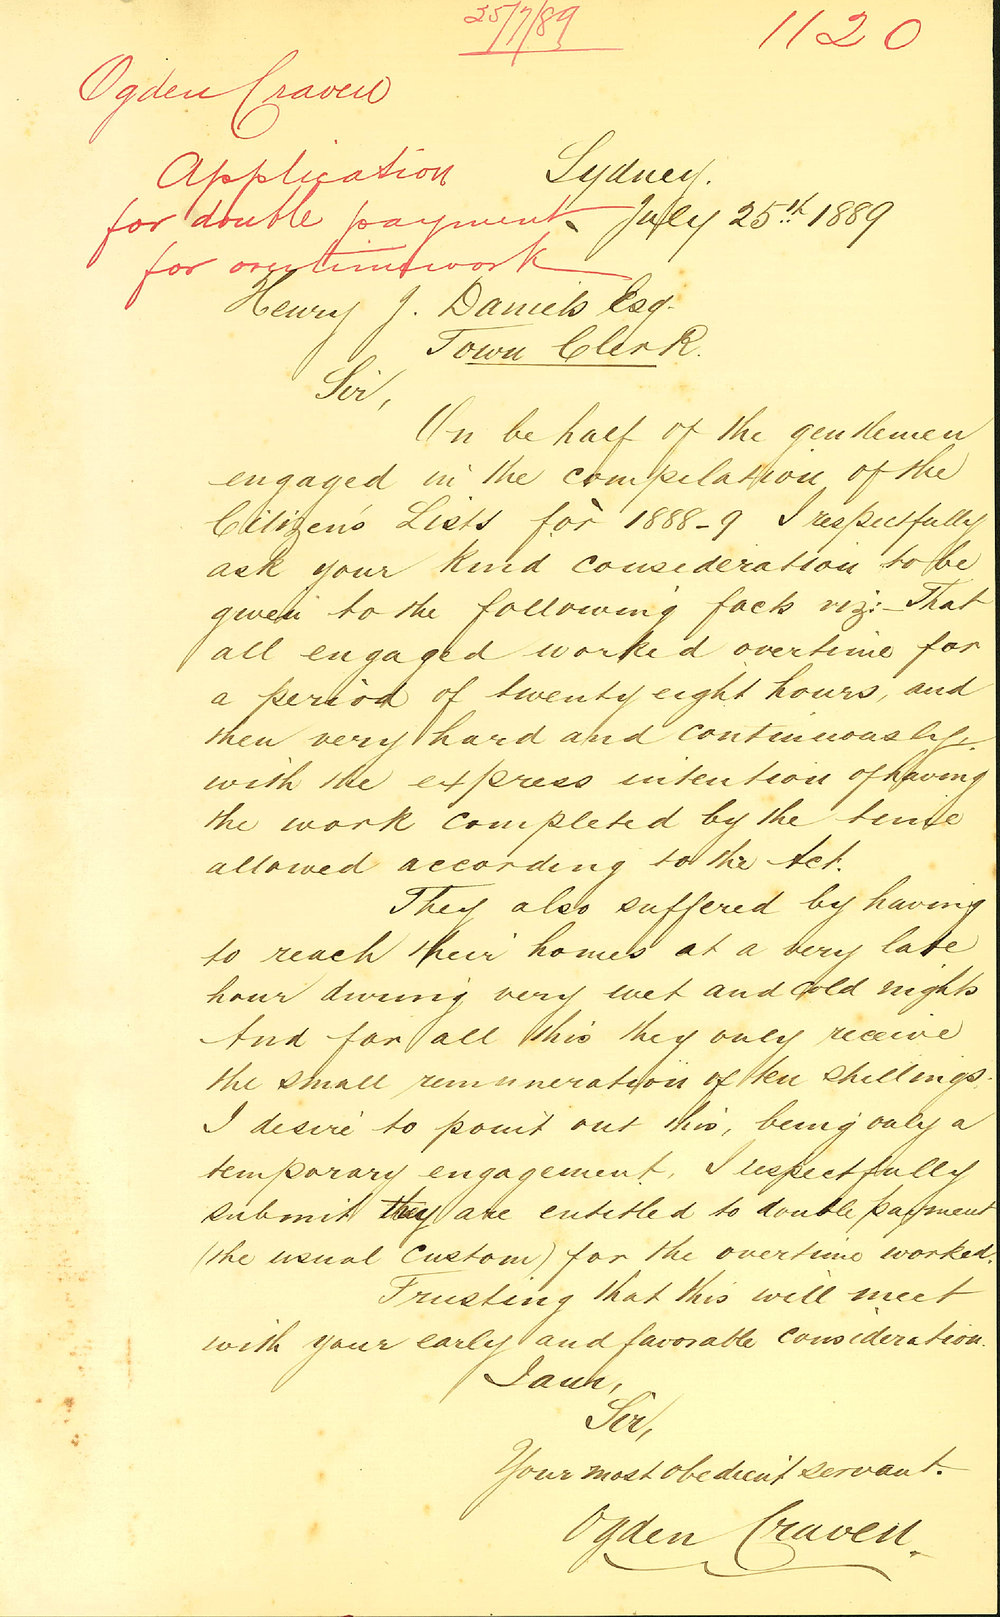 25/7/89
1120
Ogden Craven
Application
for double payment
for overtime work
Sydney.
July 25th 1889
Henry J. Daniels Esq.
Town Clerk.
Sir,
On behalf of the gentlemen
engaged in the compilation of the
Citizen's Lists for 1888-9 I respectfully
ask your kind consideration to be
given to the following facts viz:- That
all engaged worked overtime for
a period of twenty eight hours, and
then very hard and continuously,
with the express intention of having
the work completed by the time
allowed according to the Act.
They also suffered by having
to reach their homes at a very late
hour during very wet and cold nights
And for all this they only receive
the small remuneration of ten shillings.
I desire to point out this, being only a
temporary engagement, I respectfully
submit they are entitled to double payment
(the usual custom) for the overtime worked.
Trusting that this will meet
with your early and favorable consideration.
I am,
Sir,
Your most obedient servant.
Ogden Craven.